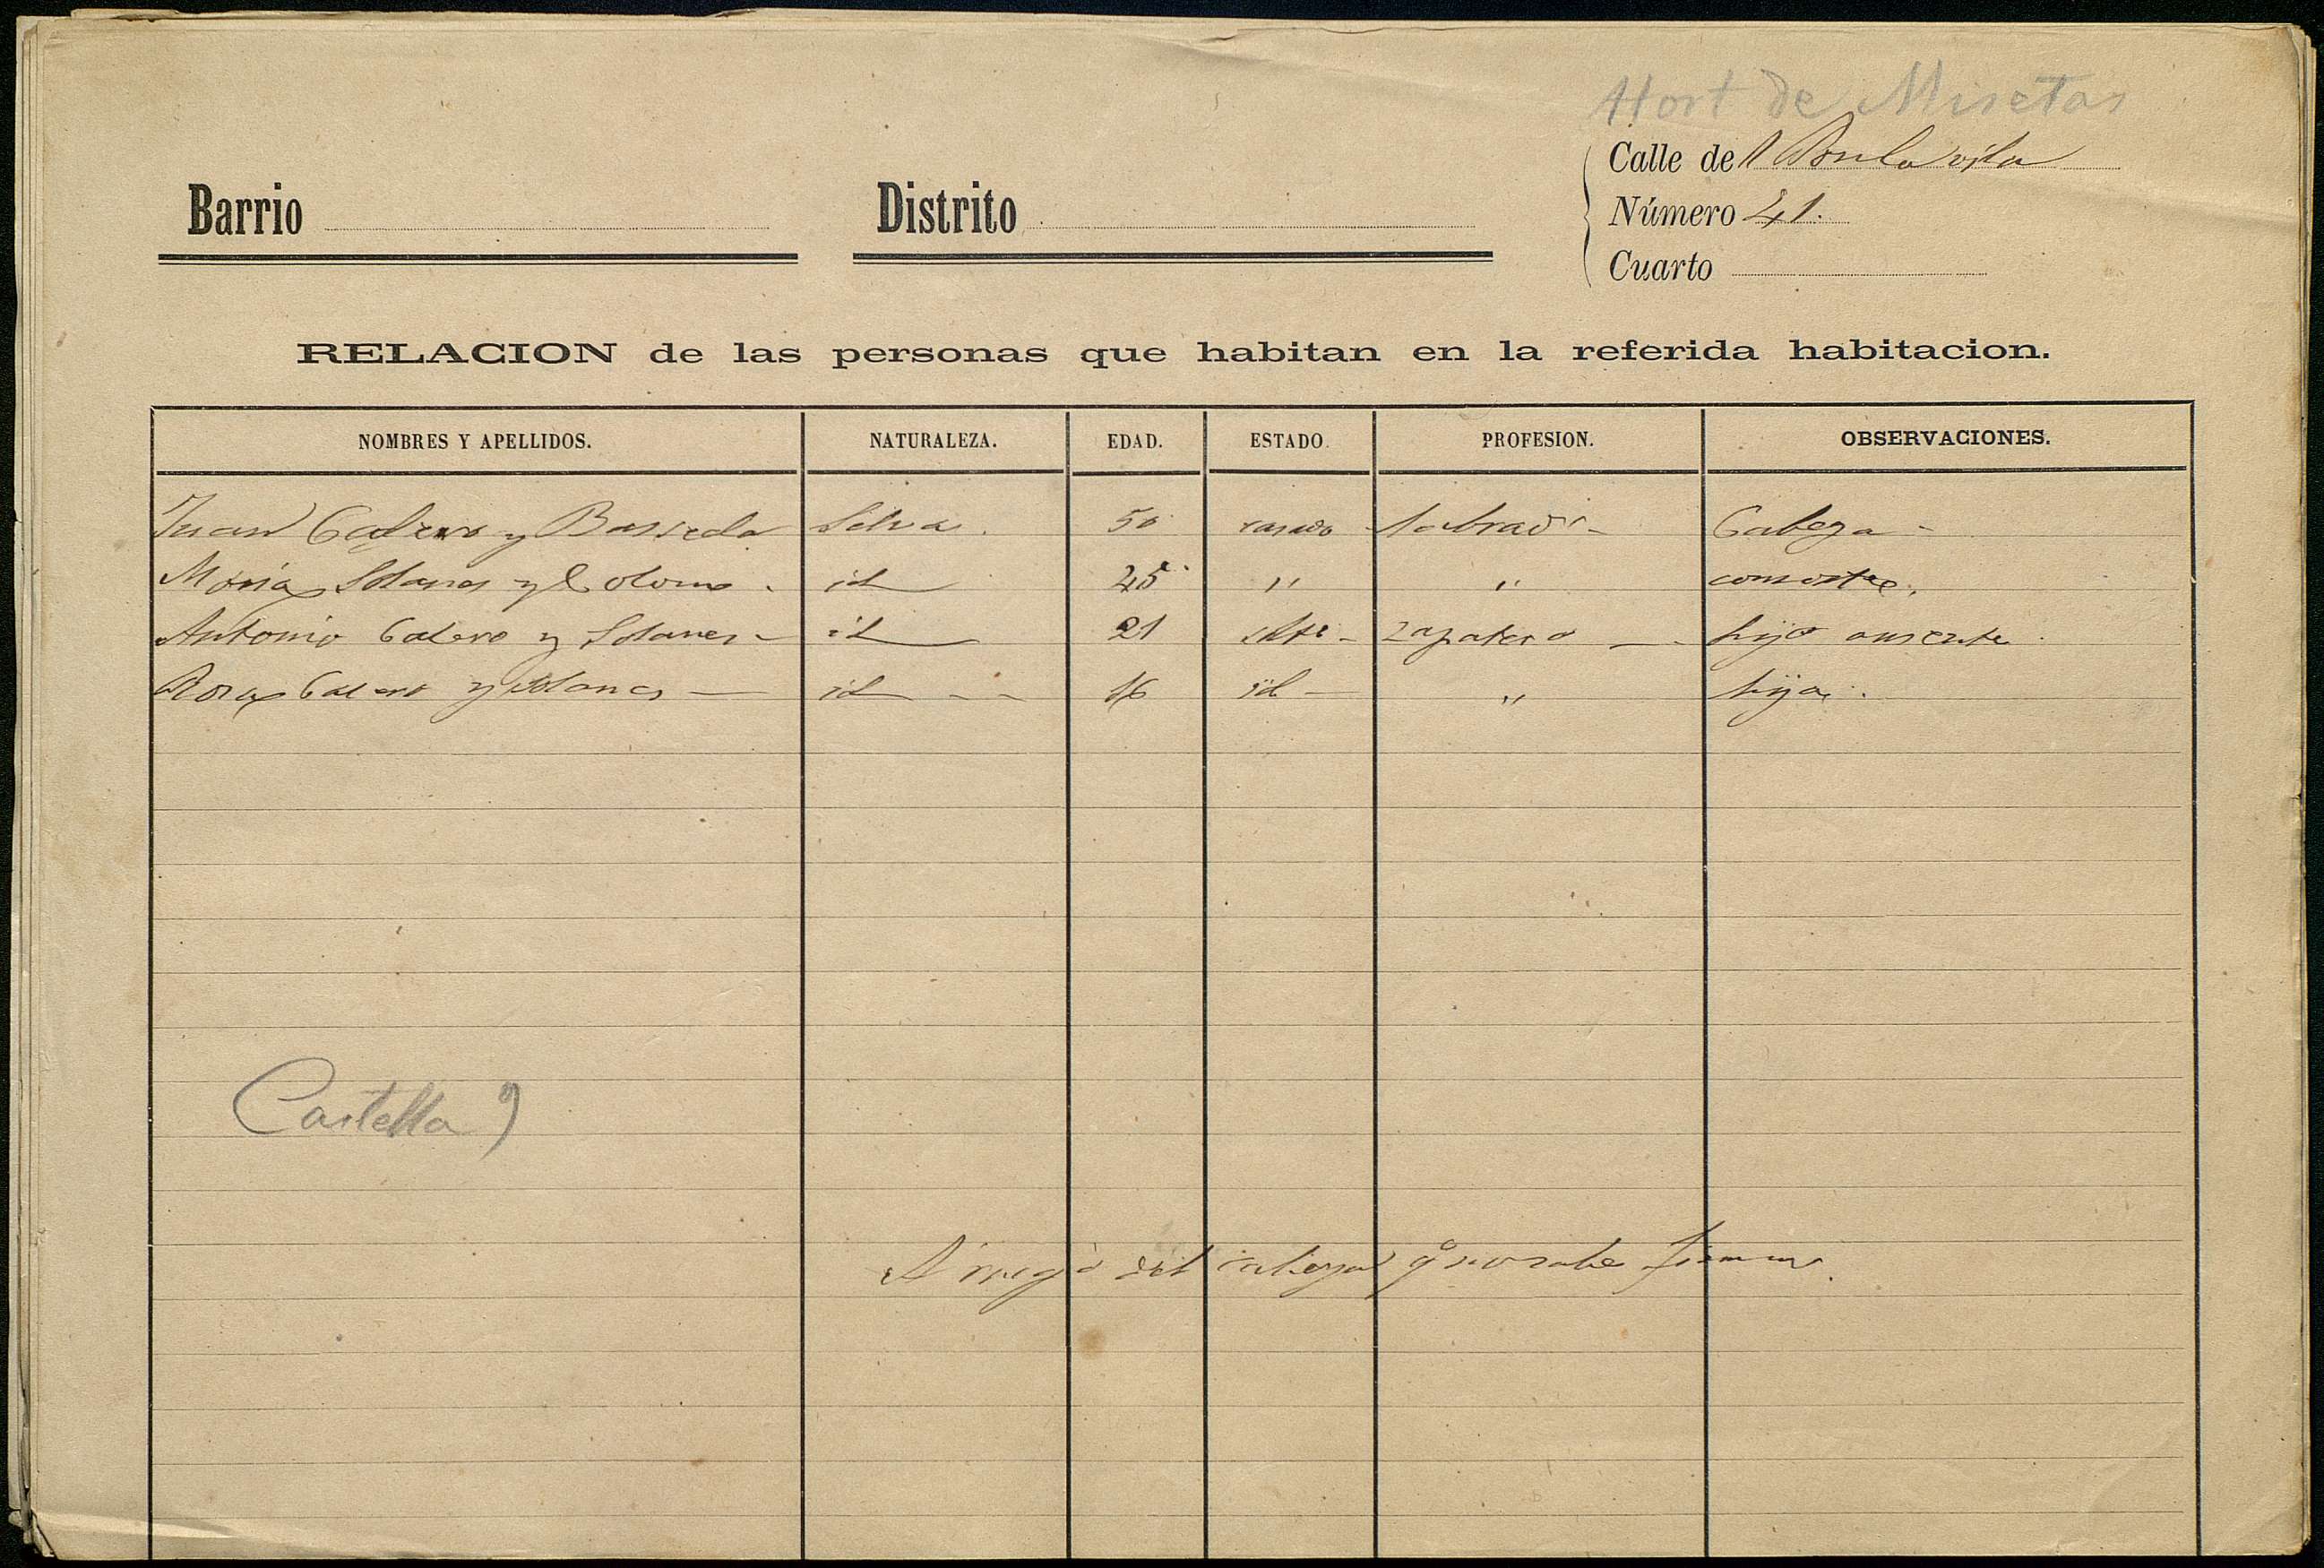 Hort de Misetas
Calle de
Barrio Distrito Número 41.
Cuarto
RELACION de las personas que habitan en la referida habitacion.
NOMBRES Y APELLIDOS. NATURALEZA. EDAD. ESTADO. PROFESION. OBSERVACIONES.
Juan y Selva. 50 casado labrador Cabeza
Maria Solanes y Coloma id 45 " " consorte.
Antonio y Solanes id 21 zapatero hijo ausente
Rosa y Solanes id 16 id " hija.
Castella
A ruego del cabeza q no sabe firmar.